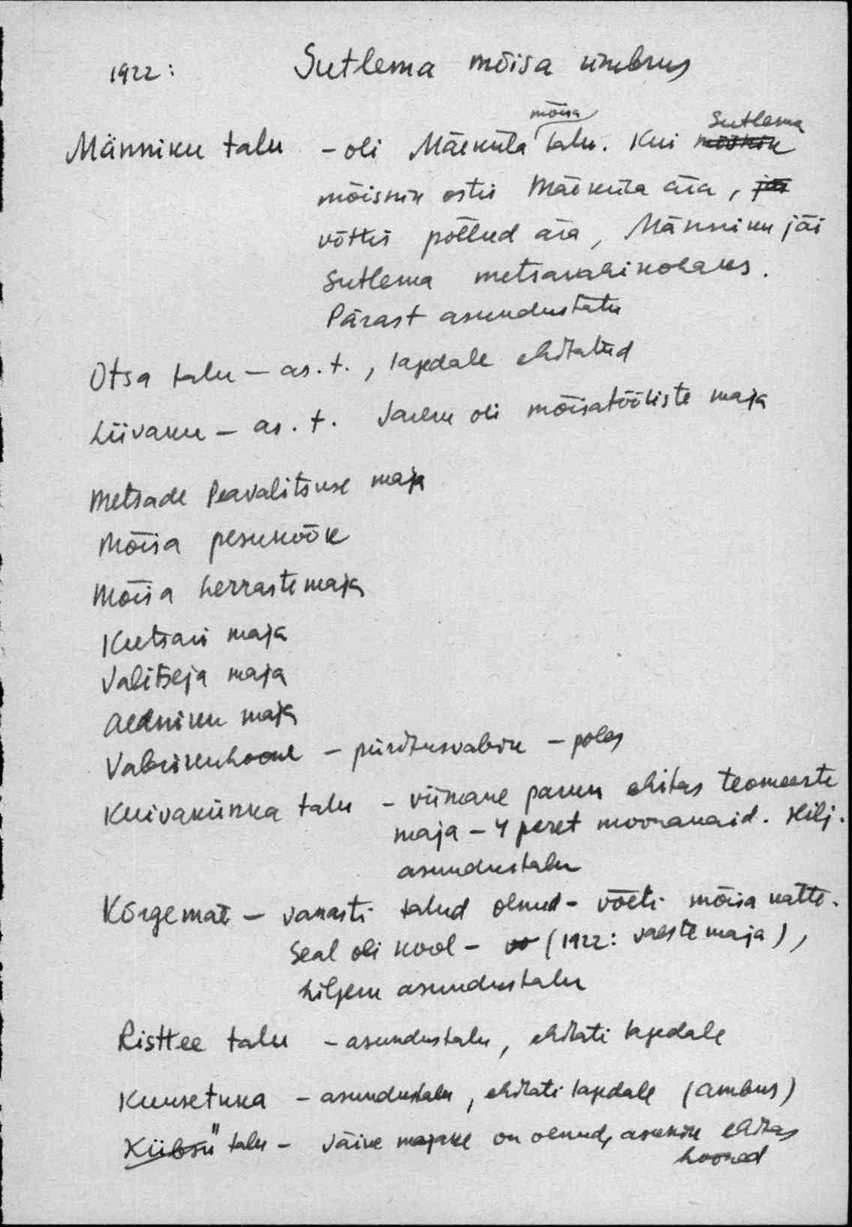 1922: Sutlema mõisa ümbrus
Männiku talu - oli Mäeküla mõisa talu. Kui Sutlema
mõisnik ostis Mäeküla ära,
võttis põllud ära, Männiku jäi
Sutlema metsavahikohaks.
Pärast asundustalu
Otsa talu - as. t., lagedale ehitatud
Liivaku - as. t. Varem oli mõisatööliste maja
Metsade Peavalitsuse maja
Mõisa pesuköök
Mõisa herrastemaja
Kutsari maja
Valitseja maja
Aedniku maja
Vabrikuhoone - piiritusvabrik - põles
Kuivakünka talu - viimane parun ehitas teomeeste
maja - 4 peret moonakaid. Hilj.
asundustalu
Kõrgemäe - vanasti talud olnud - võeti mõisa kätte.
Seal oli kool - (1922: vaestemaja),
hiljem asundustalu
Risttee talu - asundustalu, ehitati lagedale
Kuusetuka - asundustalu, ehitati lagedale (Ambus)
Kübsü" talu - väike majake on olnud, asunik ehitas
hooned